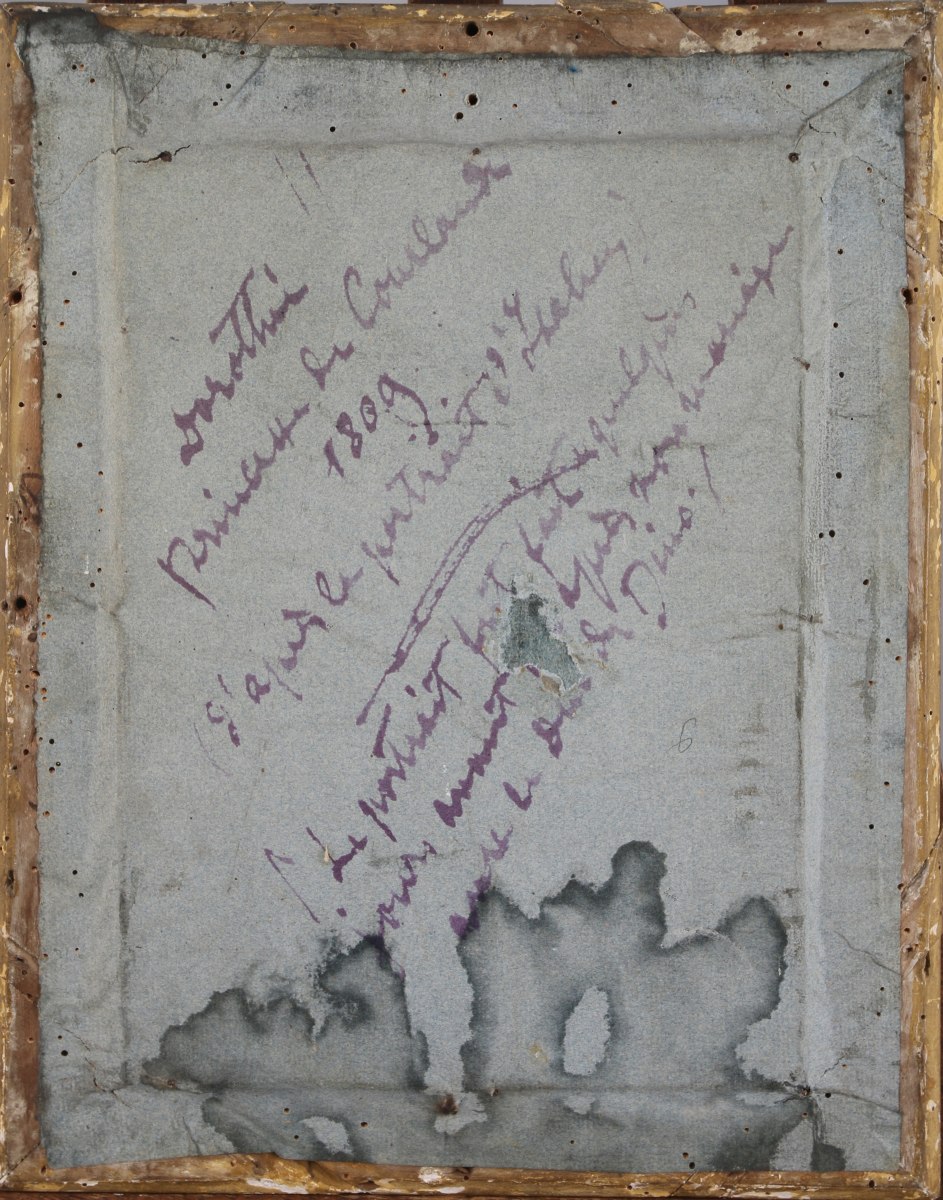 Dorothée
princesse de Courlande
1809
(d'après le portrait d'Isabey)
(Le portrait fut fait quelques
jours avant après mon mariage
avec le duc de Dino.)
6